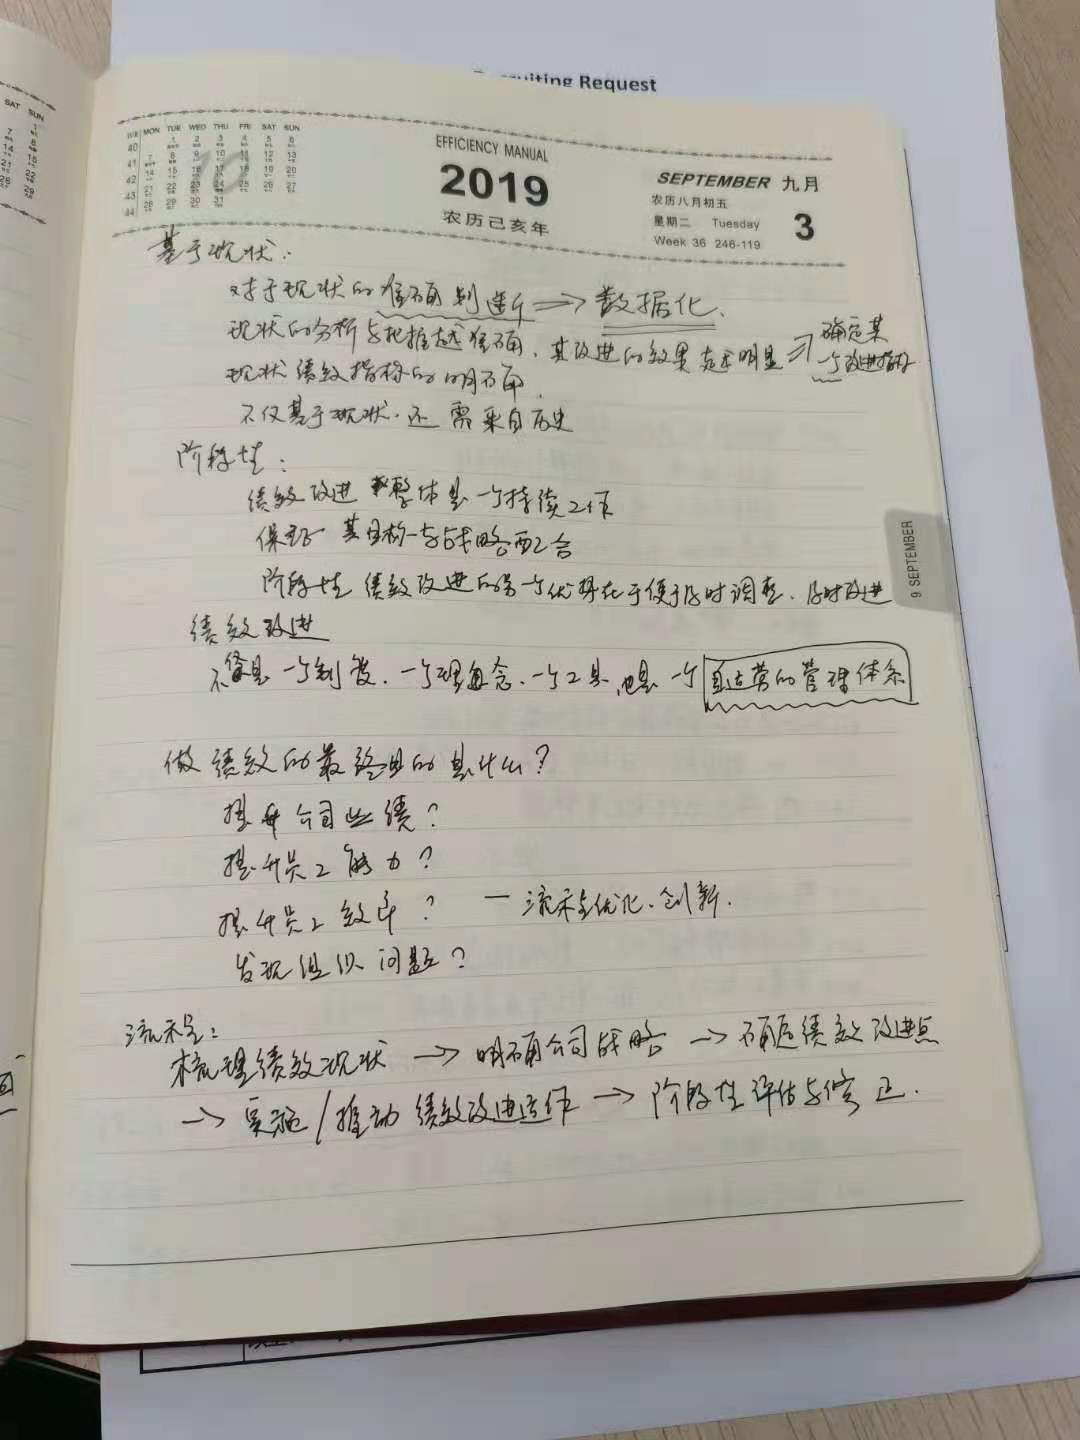 Recruiting Request
SAT SUN
WK MON TUE WED THU FRI SAT SUN
40 1 2 3 4 5 6
41 7 8 9 10 11 12 13
42 14 15 16 17 18 19 20
43 21 22 23 24 25 26 27
44 28 29 30 31
10
EFFICIENCY MANUAL
2019
农历己亥年
SEPTEMBER 九月
农历八月初五
星期二 Tuesday
Week 36 246-119
3
基于现状:
对于现状的准确判断 ⇒ 数据化.
现状的分析与把握越准确,其改进的效果越明显 ⇒ 确定某
一个改进指标
现状绩效指标的明确.
不仅基于现状.还需来自历史
阶段性:
绩效改进整体是一个持续工作
保证其目标与战略配合
阶段性绩效改进的另一个优势在于便于及时调整、及时改进
9 SEPTEMBER
绩效改进
不仅是一个制度、一个理念、一个工具,也是一个自运营的管理体系
做绩效的最终目的是什么?
提升公司业绩?
提升员工能力?
提升员工效率? — 流程优化、创新.
发现组织问题?
流程:
梳理绩效现状 → 明确公司战略 → 确定绩效改进点
→ 实施/推动绩效改进运作 → 阶段性评估与修正.